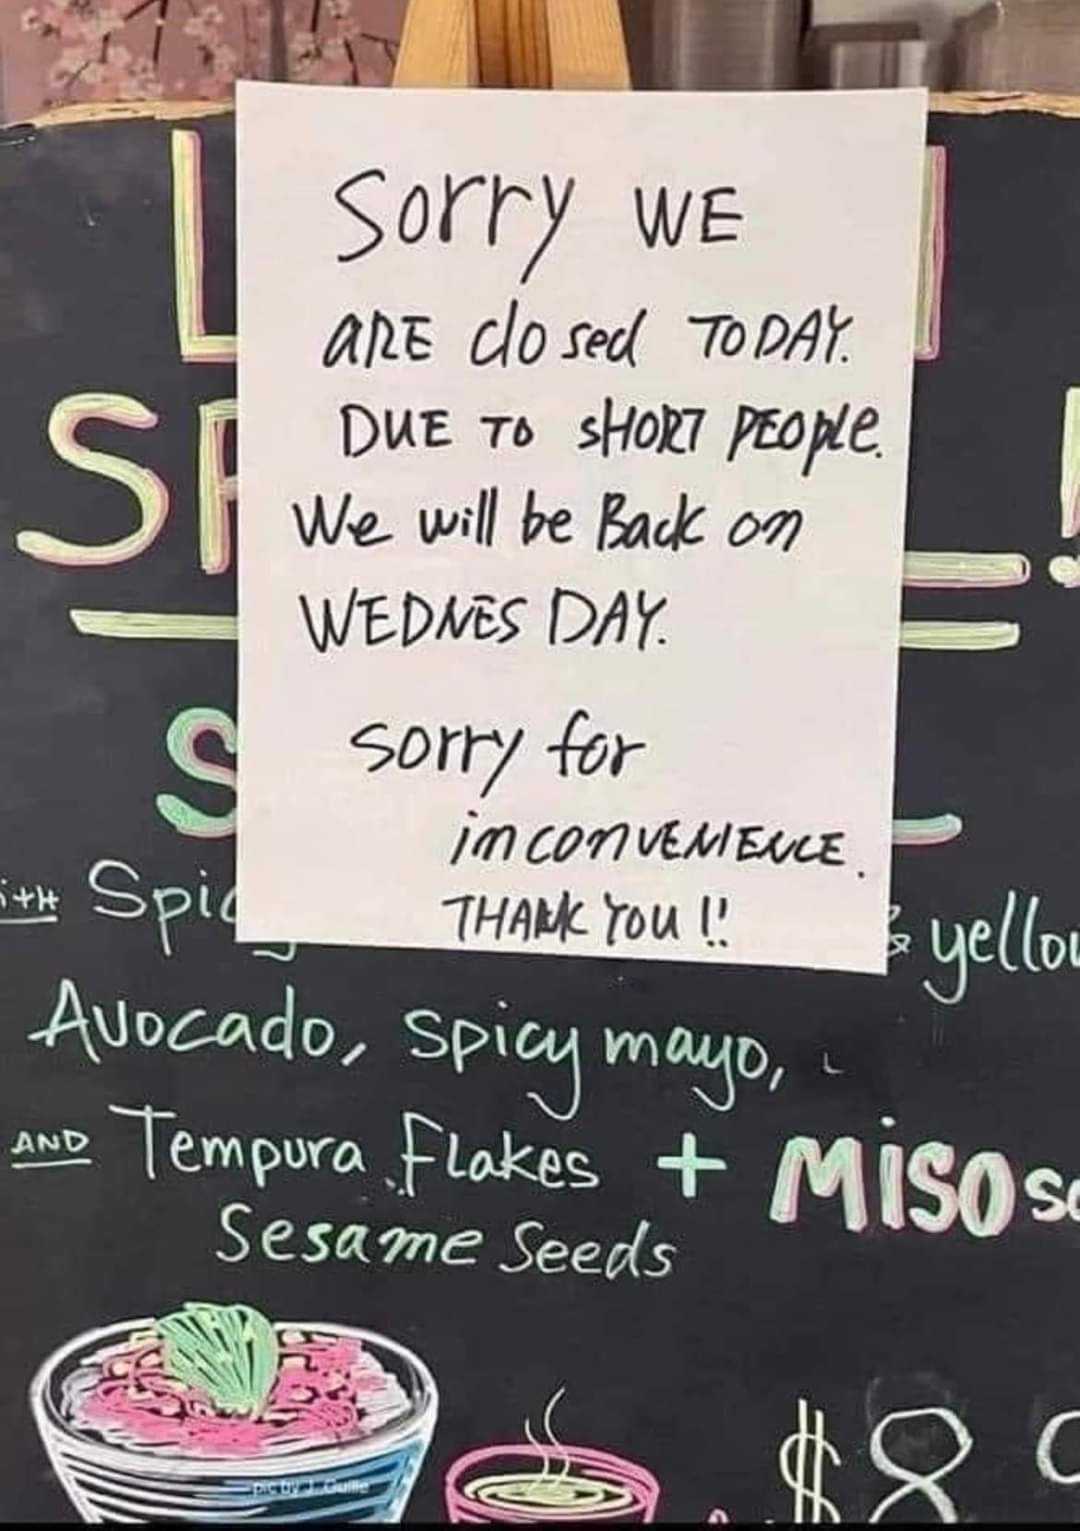 Sorry WE
ARE closed TODAY.
DUE TO SHORT PEOPLE.
We will be Back on
WEDNESDAY.
sorry for
inconVENIENCE.
THANK YOU !!
Avocado, spicy mayo,
AND Tempura Flakes + MISO
Sesame Seeds
$8
pic by J. Guille